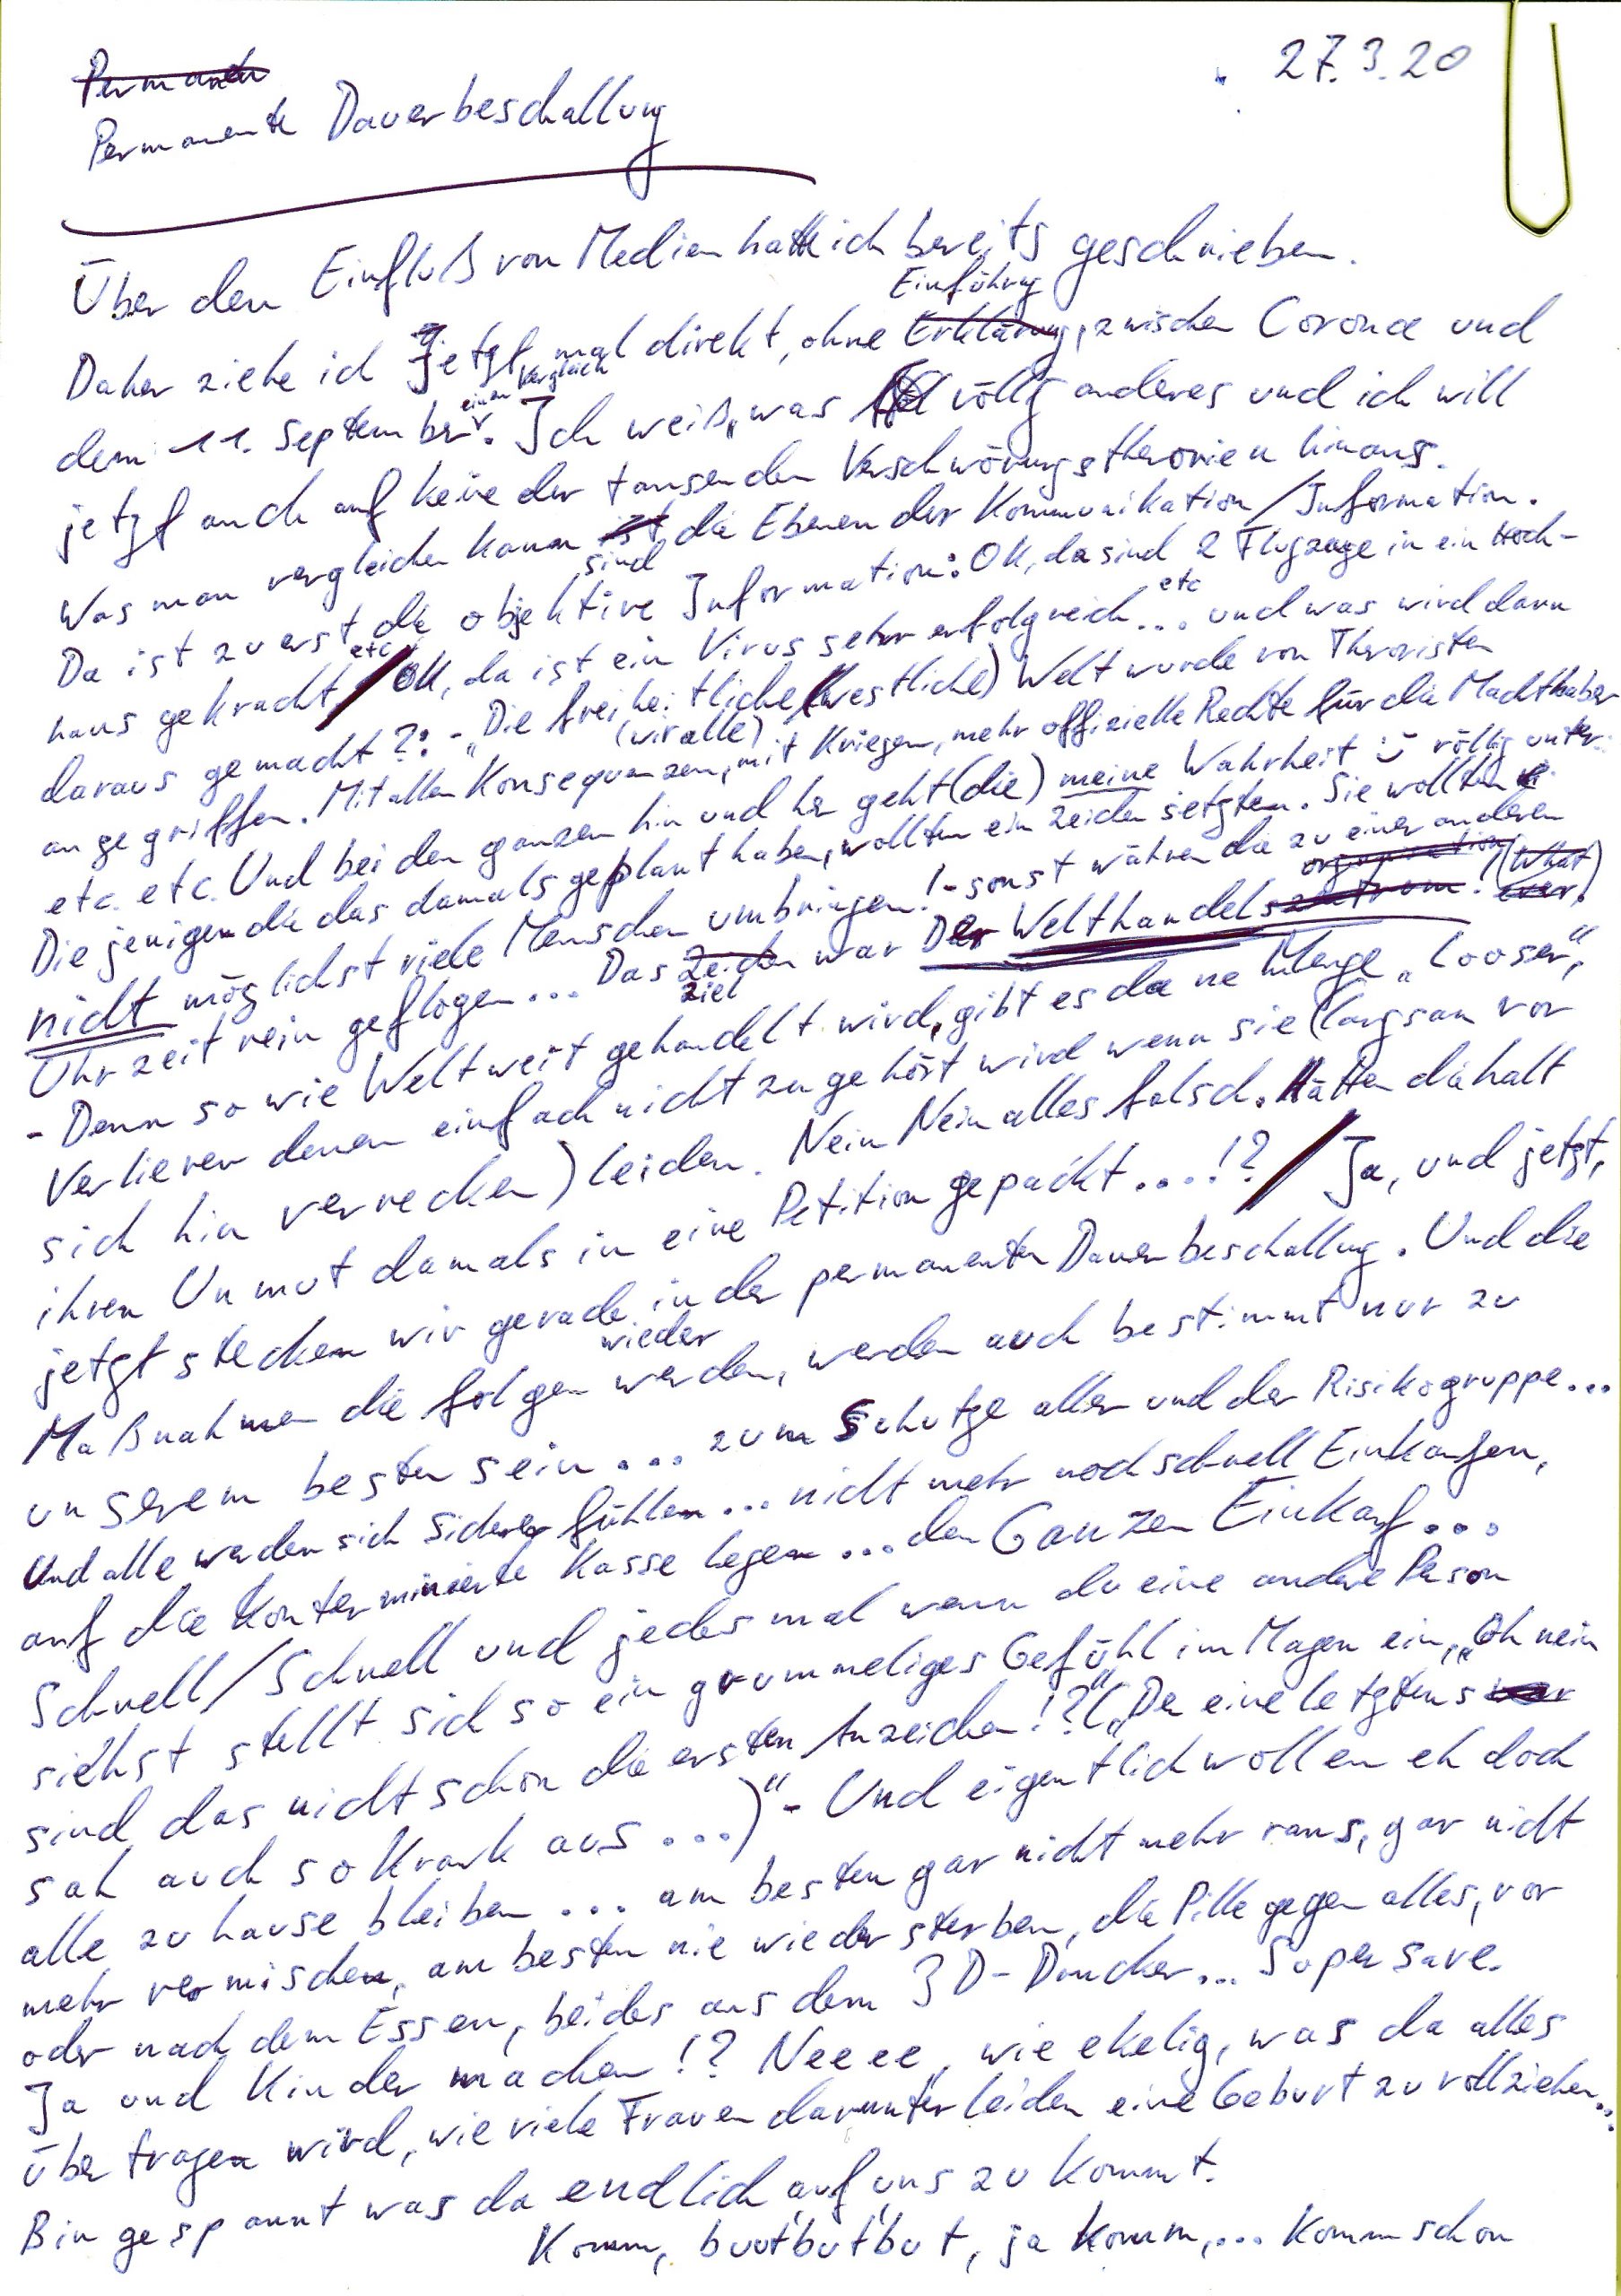 27.3.20
Permanente
Permanente Dauerbeschallung
Über den Einfluß von Medien hatte ich bereits geschrieben.
Einführung
Daher ziehe ich jetzt mal direkt, ohne Erklärung, zwischen Corona und
einen Vergleich
dem 11. September. Ich weiß, was völlig anderes und ich will
jetzt auch auf keine der tausenden Verschwörungstheorien hinaus.
Was man vergleichen kann ist die Ebenen der Kommunikation/Information.
sind
Da ist zuerst die objektive Information: OK, da sind 2 Flugzeuge in ein Hoch-
etc etc
haus gekracht / OK, da ist ein Virus sehr erfolgreich... und was wird dann
daraus gemacht?: - "Die freiheitliche (westliche) Welt wurde von Theroristen
(wir alle)
angegriffen. Mit allen Konsequenzen, mit Kriegen, mehr offizielle Rechte für die Machthaber
etc. etc. Und bei den ganzen hin und her geht (die) meine Wahrheit völlig unter:
Die jenigen die das damals geplant haben, wollten ein Zeichen setzten. Sie wollten
nicht möglichst viele Menschen umbringen! - sonst währen die zu einer anderen
organisation (What
Uhrzeit rein geflogen... Das Zeichen war Der Welthandelszentrum! ever)!
Ziel
- Denn so wie Weltweit gehandelt wird, gibt es da ne Menge "Looser",
Verlierer denen einfach nicht zu gehört wird wenn sie (langsam vor
sich hin verrecken) leiden. Nein Nein alles falsch. Hätten die halt
ihren Unmut damals in eine Petition gepackt....!? / Ja, und jetzt,
jetzt stecken wir gerade in der permanenten Dauerbeschallung. Und die
wieder
Maßnahmen die folgen werden, werden auch bestimmt nur zu
unserem besten sein... zum Schutze aller und der Risikogruppe...
Und alle werden sich sicherer fühlen... nicht mehr noch schnell Einkaufen,
auf die Konterminierte Kasse legen... den Ganzen Einkauf...
Schnell/Schnell und jedes mal wenn du eine andere Person
siehst stellt sich so ein grummeliges Gefühl im Magen ein, "Oh nein
sind das nicht schon die ersten Anzeichen!?" ("Der eine letztens war
sah auch so Krank aus...)" - Und eigentlich wollen eh doch
alle zu hause bleiben... am besten gar nicht mehr raus, gar nicht
mehr vermischen, am besten nie wieder sterben, die Pille gegen alles, vor
oder nach dem Essen, beides aus dem 3D-Drucker... Super save.
Ja und Kinder machen!? Neeee, wie ekelig, was da alles
übertragen wird, wie viele Frauen darunter leiden eine Geburt zu vollziehen...
Bin gespannt was da endlich auf uns zu kommt.
Komm, buut'but'but, ja komm,... komm schon